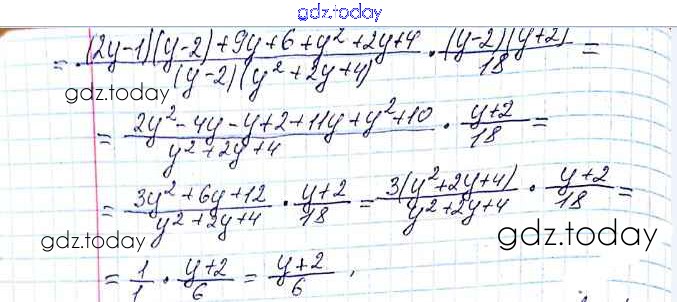 gdz.today
= ((2y-1)(y-2)+9y+6+y²+2y+4)/((y-2)(y²+2y+4)) · ((y-2)(y+2))/18 =
gdz.today
= (2y²-4y-y+2+11y+y²+10)/(y²+2y+4) · (y+2)/18 =
= (3y²+6y+12)/(y²+2y+4) · (y+2)/18 = (3(y²+2y+4))/(y²+2y+4) · (y+2)/18 =
gdz.today
gdz.today
= 1/1 · (y+2)/6 = (y+2)/6 .